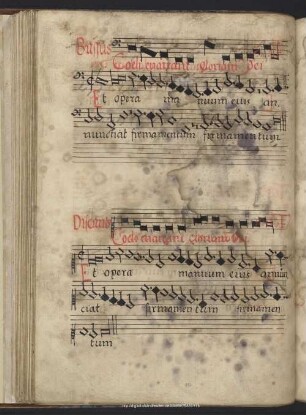 Bassus
Coeli enarrant gloriam Dei
Et opera manuum eius an
nunciat firmamentum firmamentum
Discant
Coeli enarrant gloriam Dei
Et opera manuum eius annun
ciat firmamentum firmamen
tum